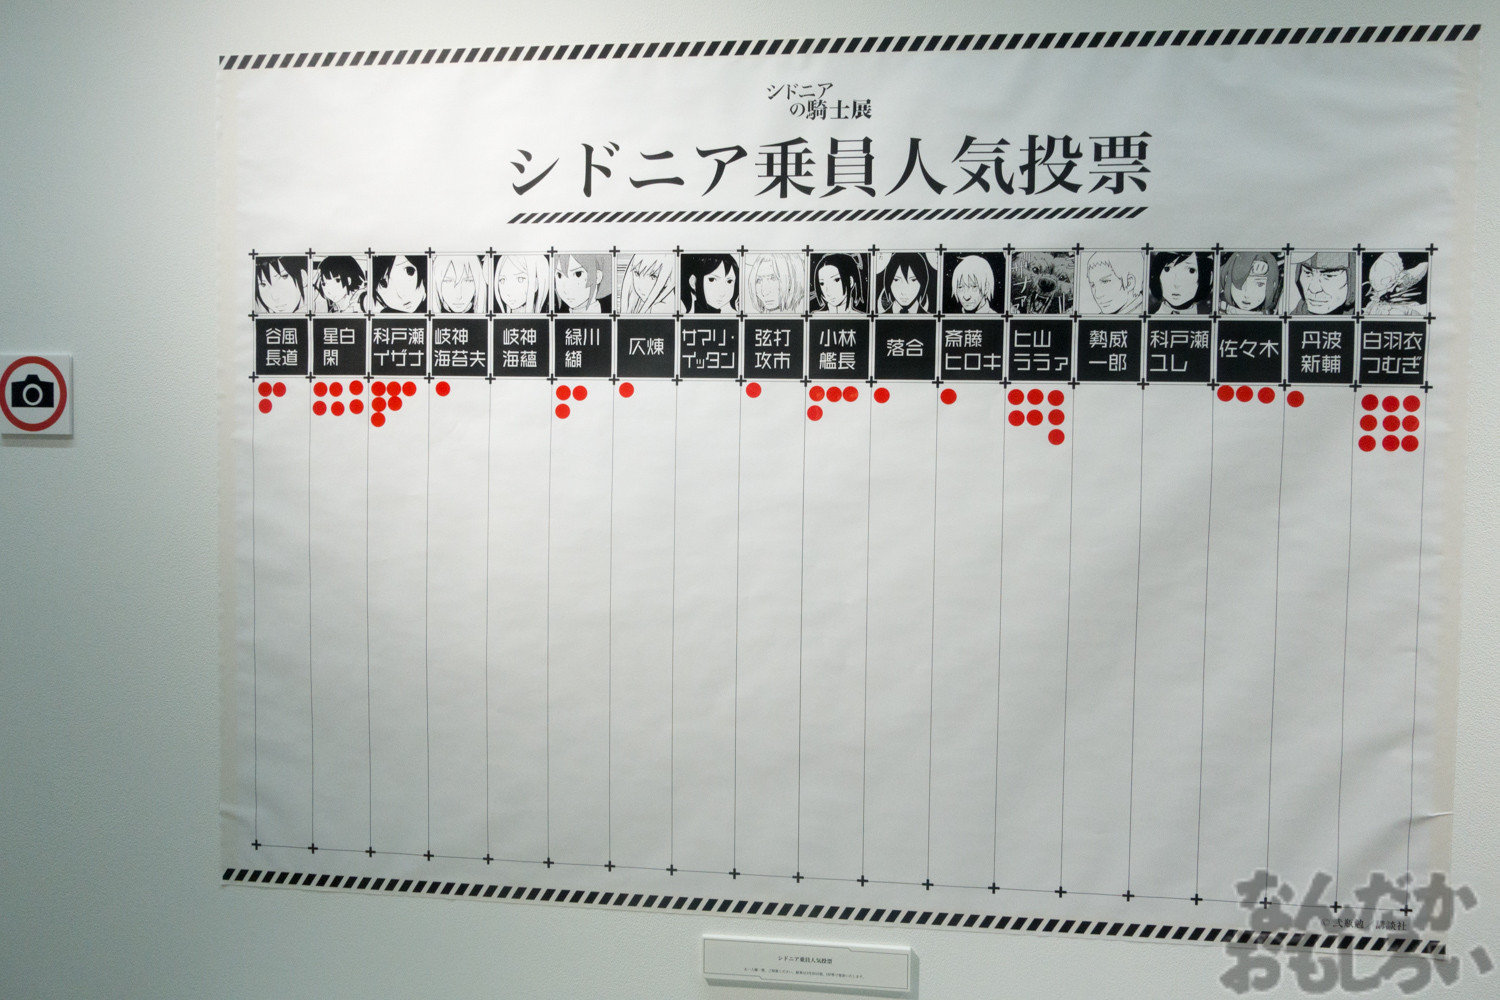 シドニア
の騎士展
シドニア乗員人気投票
谷風
長道
星白
閑
科戸瀬
イザナ
岐神
海苔夫
岐神
海蘊
緑川
纈
仄煉
サマリ・
イッタン
弦打
攻市
小林
艦長
落合
斎藤
ヒロキ
ヒ山
ララァ
勢威
一郎
科戸瀬
ユレ
佐々木
丹波
新輔
白羽衣
つむぎ
©弐瓶勉/講談社
シドニア乗員人気投票
なんだか
おもしろい